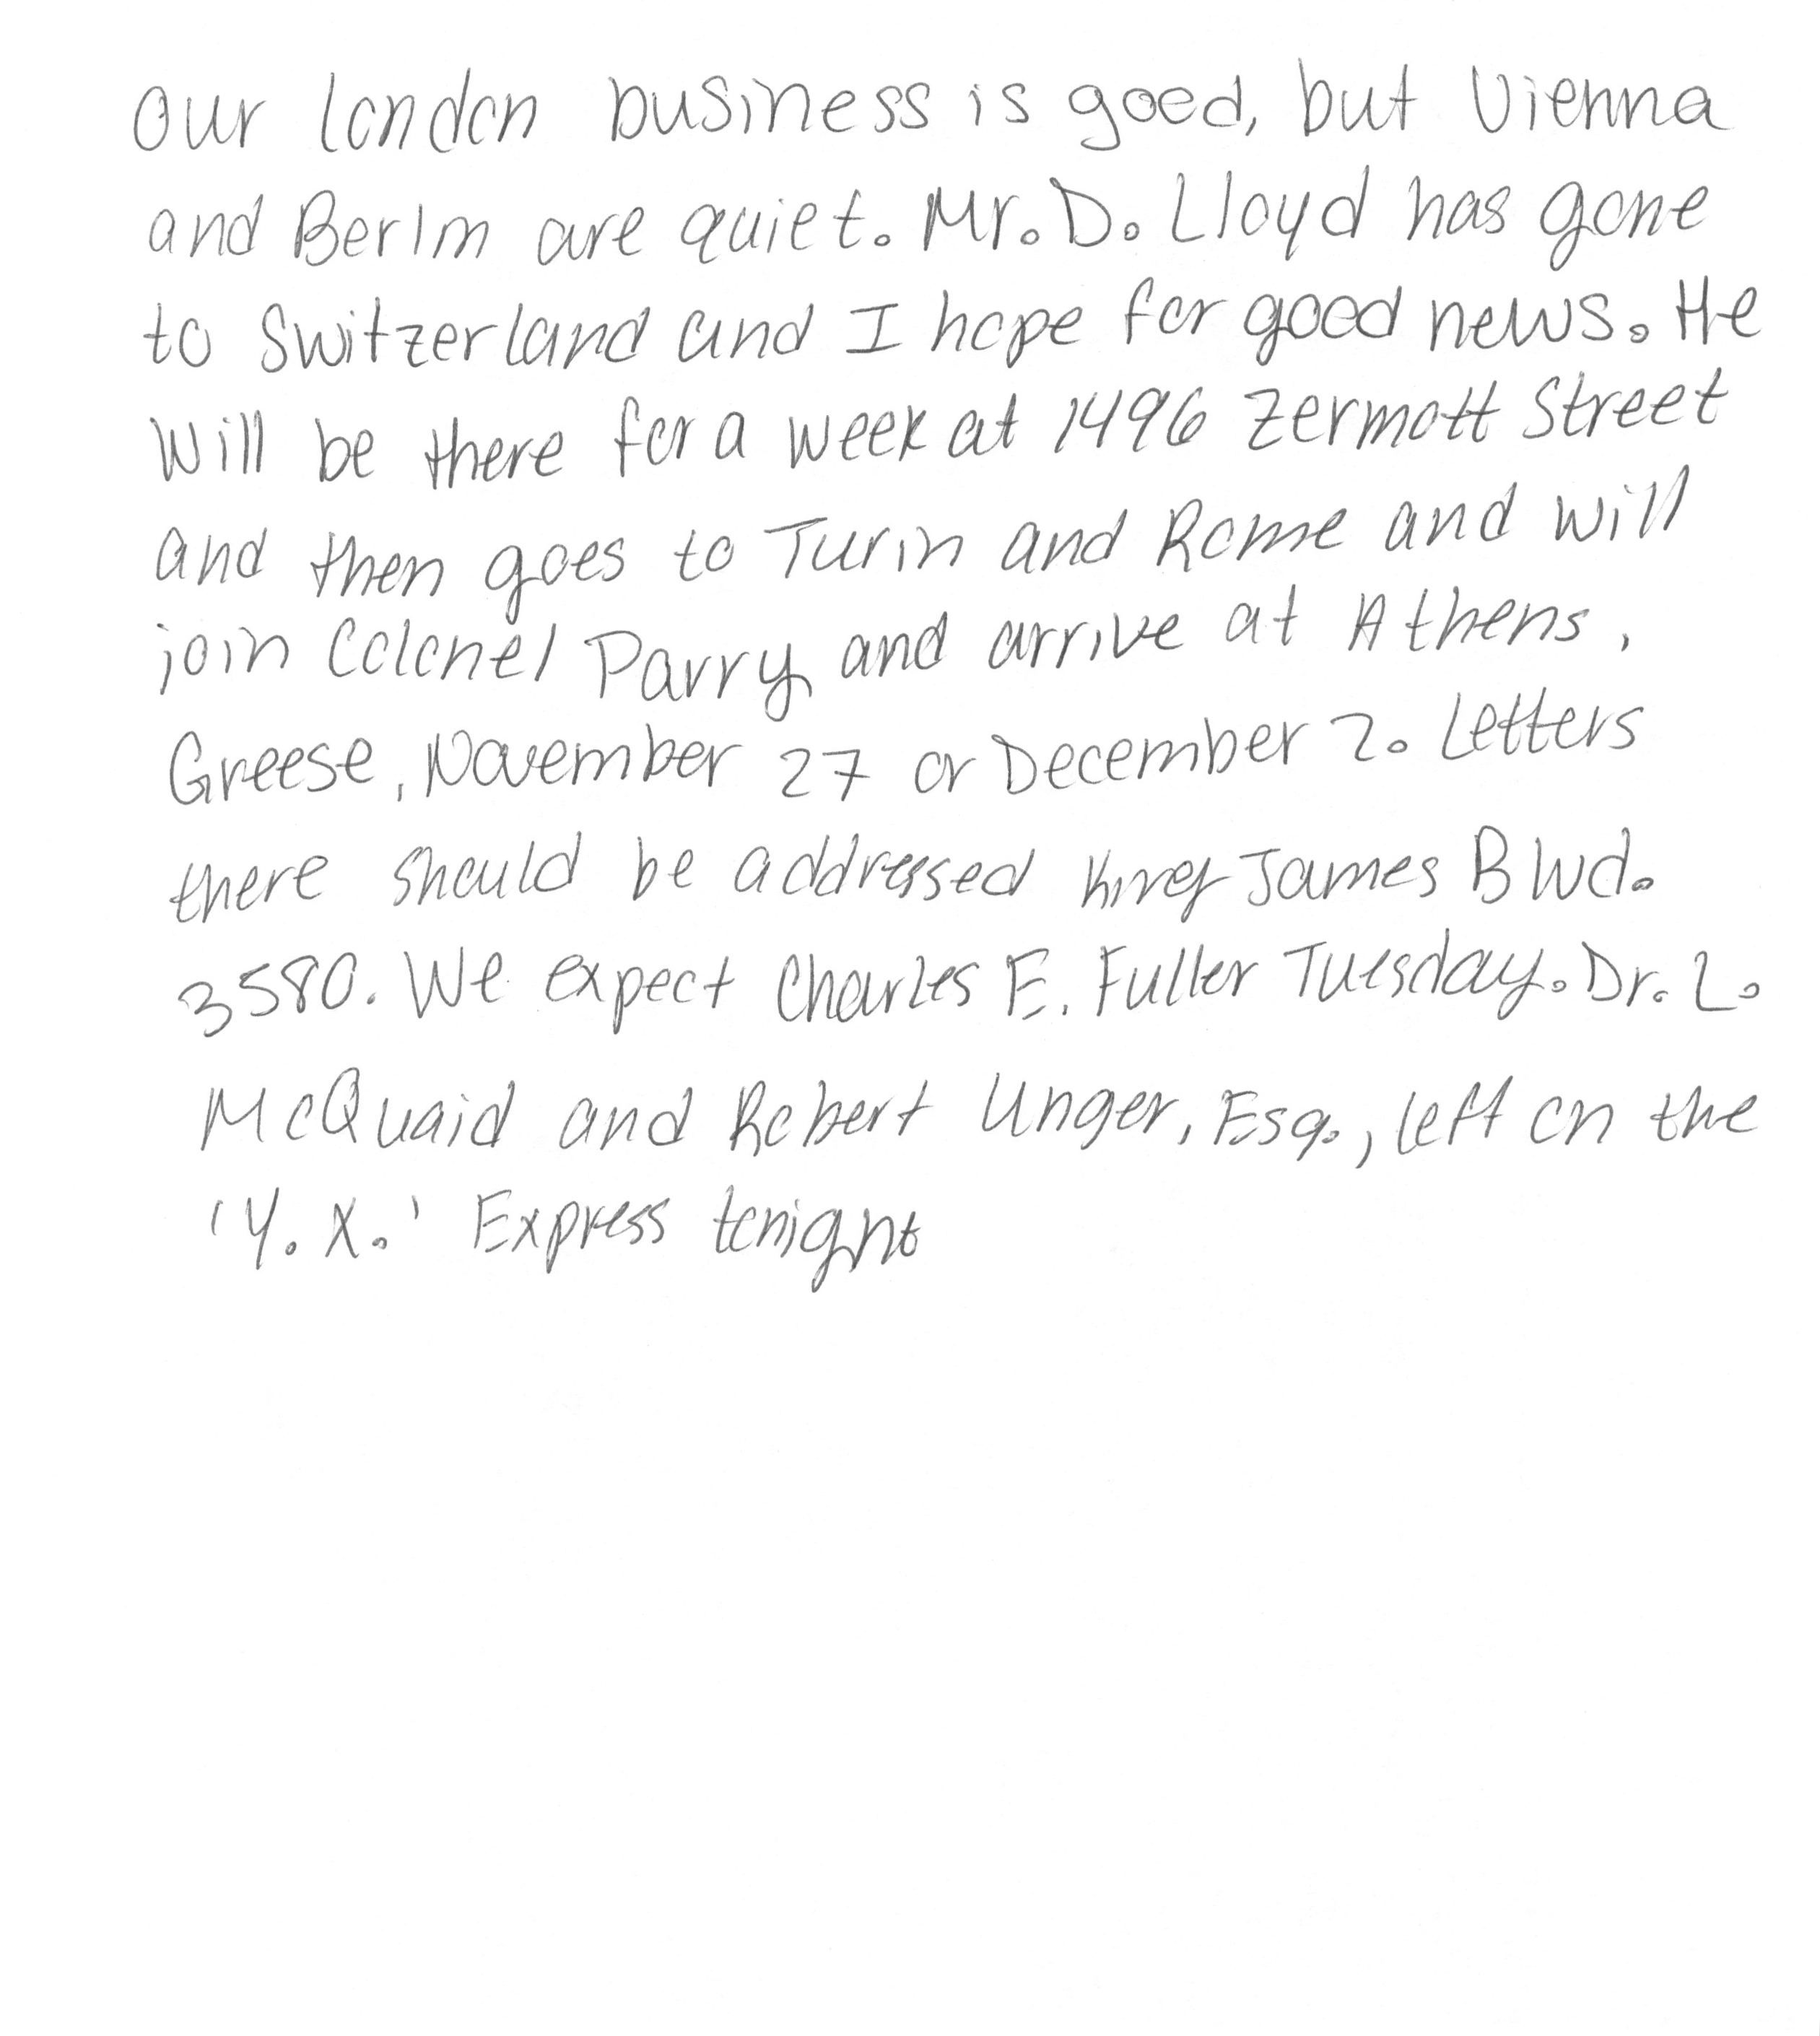 Our London business is good, but Vienna
and Berlin are quiet. Mr. D. Lloyd has gone
to Switzerland and I hope for good news. He
will be there for a week at 1496 Zermott Street
and then goes to Turin and Rome and will
join Colonel Parry and arrive at Athens,
Greese, November 27 or December 2. Letters
there should be addressed King James Blvd.
3580. We expect Charles E. Fuller Tuesday. Dr. L.
McQuaid and Robert Unger, Esq., left on the
'Y. X.' Express tonight